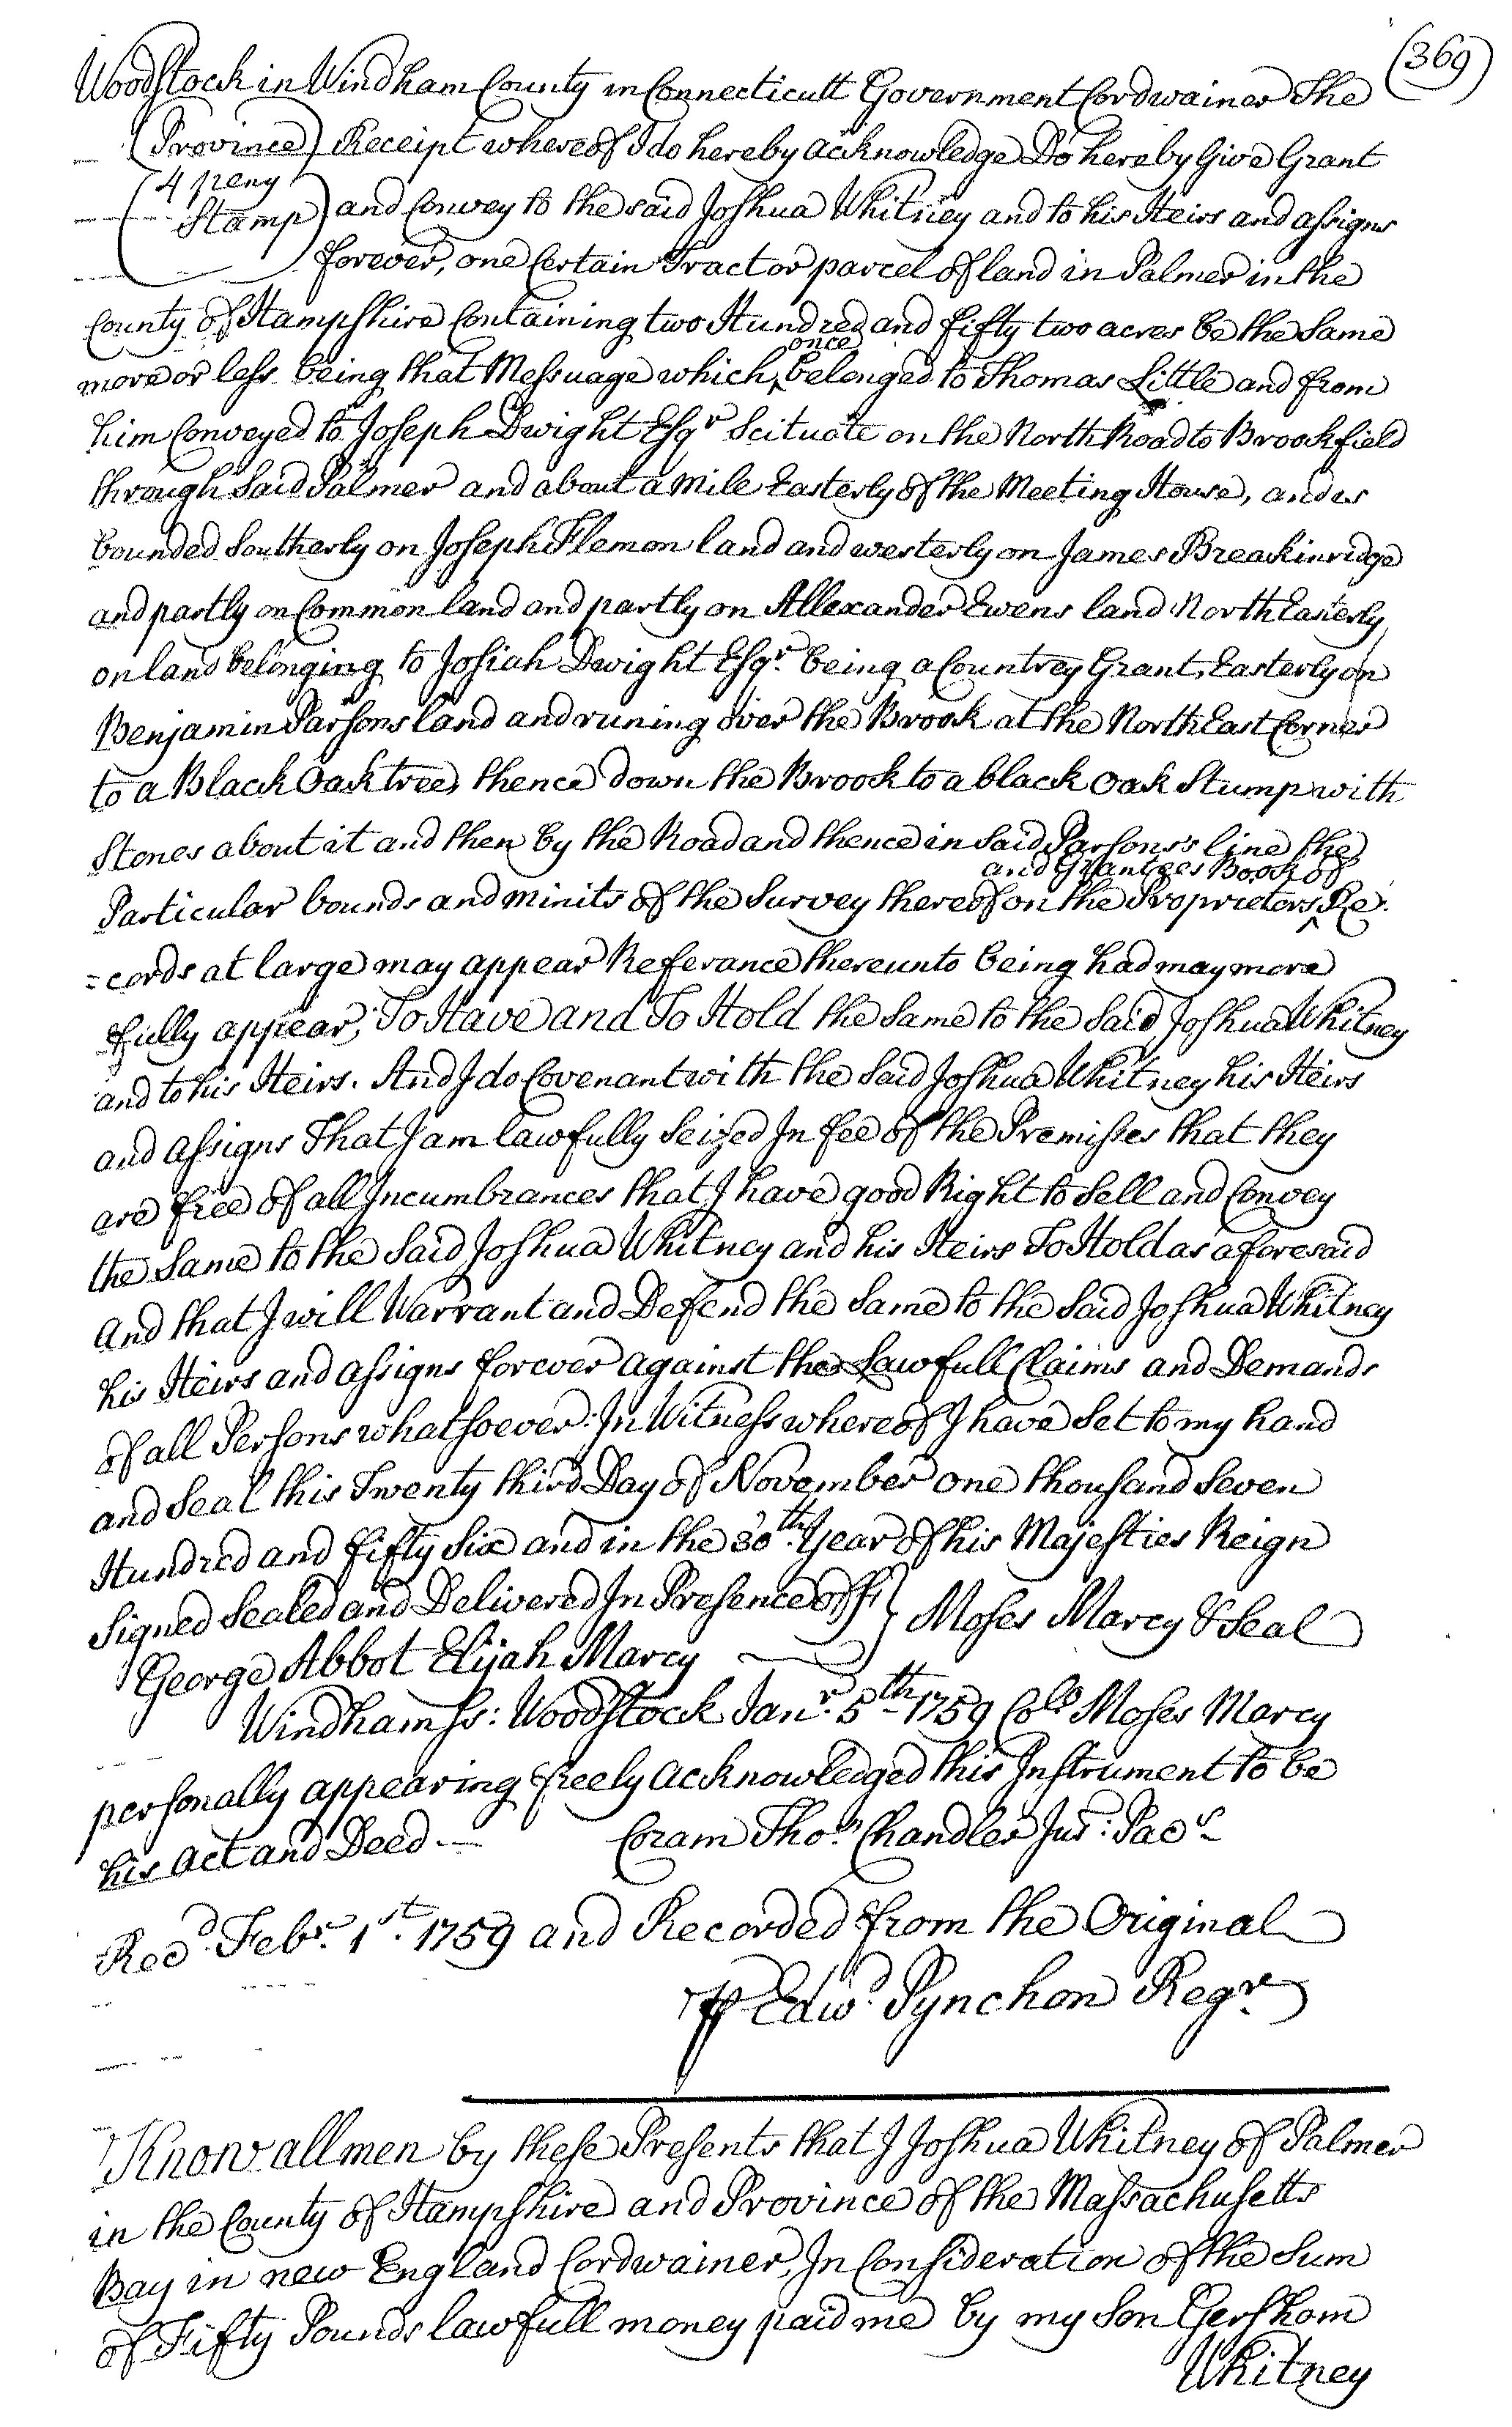 (369)
Woodstock in Windham County in Connecticutt Government Cordwainer The
(Province) Receipt whereof I do hereby acknowledge Do hereby Give Grant
(4 peny
Stamp) and Convey to the said Joshua Whitney and to his Heirs and assigns
forever, one Certain Tract or parcel of land in Palmer in the
County of Hampshire Containing two Hundred and fifty two acres be the Same
more or less being that Messuage which ‸once belonged to Thomas Little and from
him Conveyed to Joseph Dwight Esqr Scituate on the North Road to Brookfield
through Said Palmer and about a Mile Easterly of the Meeting House, and is
bounded Southerly on Joseph Flemon land and westerly on James Breakinridge
and partly on Common land and partly on Allexander Ewens land North Easterly
on land belonging to Josiah Dwight Esqr. being a Countrey Grant, Easterly on
Benjamin Parsons land and runing over the Brook at the North East Corner
to a Black Oak tree, thence down the Brook to a black Oak Stump with
Stones about it and then by the Road and thence in Said Parsons's line the
Particular bounds and minits of the Survey thereof on the Proprietors ‸and Grantees Book of Re-
=cords at large may appear Referance thereunto being had may more
fully appear, To Have and To Hold the Same to the Said Joshua Whitney
and to his Heirs. And I do Covenant with the Said Joshua Whitney his Heirs
and assigns That I am lawfully Seized In fee of the Premisses that they
are free of all Incumbrances that I have good Right to Sell and Convey
the Same to the Said Joshua Whitney and his Heirs To Hold as aforesaid
and that I will Warrant and Defend the Same to the Said Joshua Whitney
his Heirs and assigns forever against the Lawfull Claims and Demands
of all Persons whatsoever: In Witness whereof I have Set to my hand
and Seal this Twenty third Day of November one thousand Seven
Hundred and fifty Six and in the 30th. Year of his Majesties Reign
Signed Sealed and Delivered In Presence off } Moses Marcy & Seal
George Abbot Elijah Marcy
Windham ss: Woodstock Janr. 5th 1759 Colo Moses Marcy
personally appearing freely acknowledged this Instrument to be
his act and Deed.— Coram Thos. Chandler Jus: Pacs
Recd. Febr. 1st. 1759 and Recorded from the Original
⅌ Edwd. Pynchon Regr.
Know all men by these Presents that I Joshua Whitney of Palmer
in the County of Hampshire and Province of the Massachusetts
Bay in new England Cordwainer, In Consideration of the Sum
of Fifty Pounds lawfull money paid me by my Son Gershom
Whitney